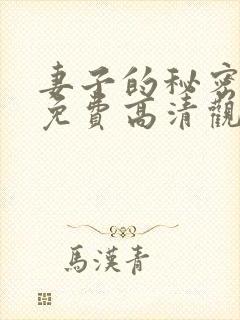 妻子的秘密
免費高清觀
馬漢青